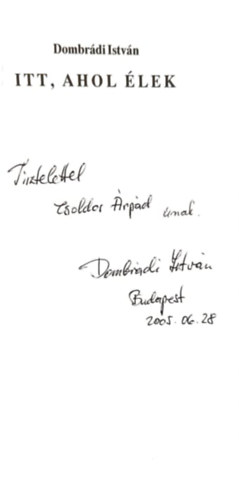 Dombrádi István
ITT, AHOL ÉLEK
Tisztelettel
Csoldos Árpád úrnak.
Dombrádi István
Budapest
2005.06.28